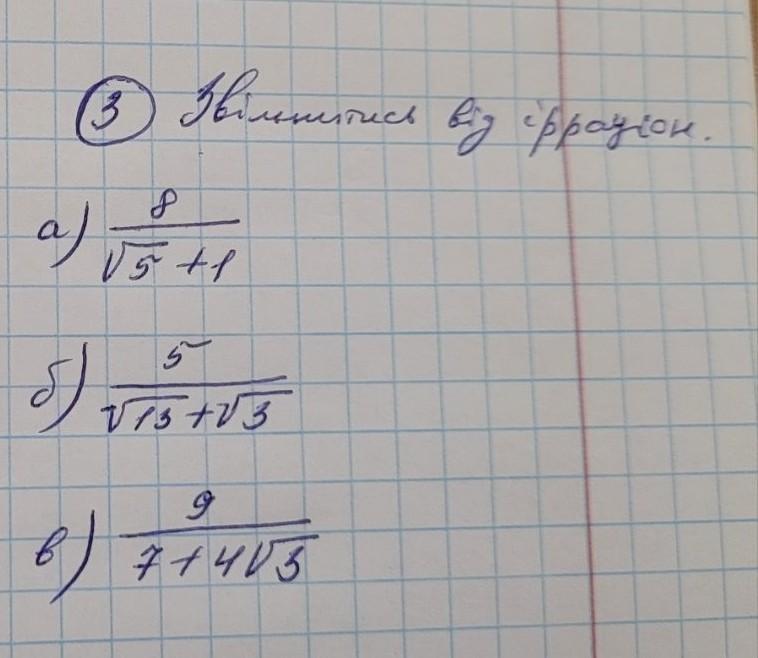 3 Звільнитись від ірраціон.
а) 8/(√5 + 1)
б) 5/(√13 + √3)
в) 9/(7 + 4√3)